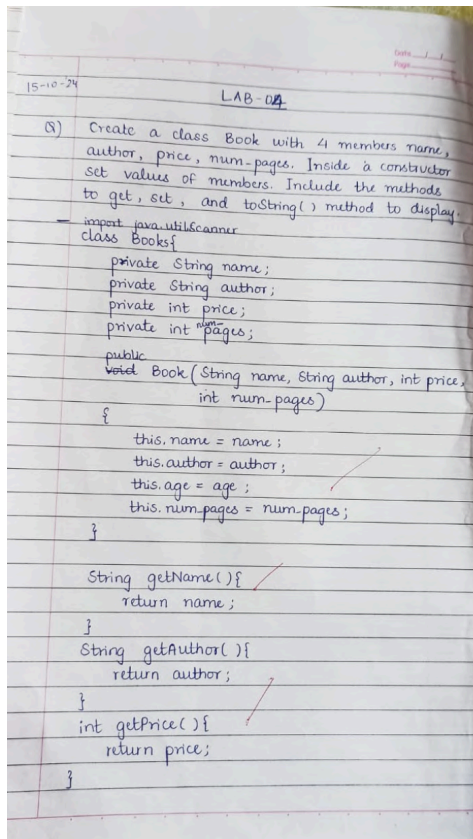 Date / /
Page
15-10-24
LAB-04
Q) Create a class Book with 4 members name,
author, price, num-pages. Inside a constructor
set values of members. Include the methods
to get, set, and toString() method to display.
- import java.util.Scanner
class Books{
private String name;
private String author;
private int price;
private int num-pages;
public
void Book (String name, String author, int price,
int num-pages)
{
this.name = name;
this.author = author;
this.age = age;
this.num-pages = num-pages;
}
String getName(){
return name;
}
String getAuthor(){
return author;
}
int getPrice(){
return price;
}